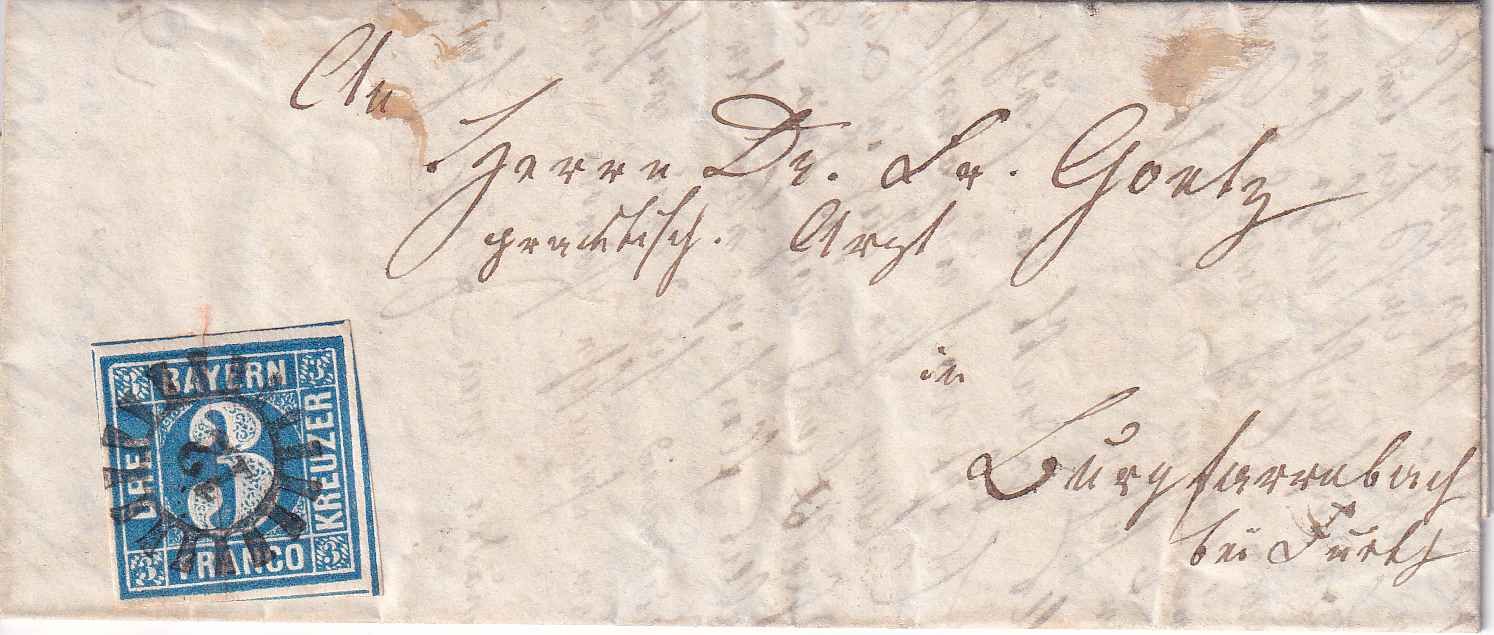 An
Herrn Dr. Fr. Goetz
practisch. Arzt
in
Burgfarrnbach
bei Fürth
3 BAYERN 3
DREI
3
KREUZER
3 FRANCO 3